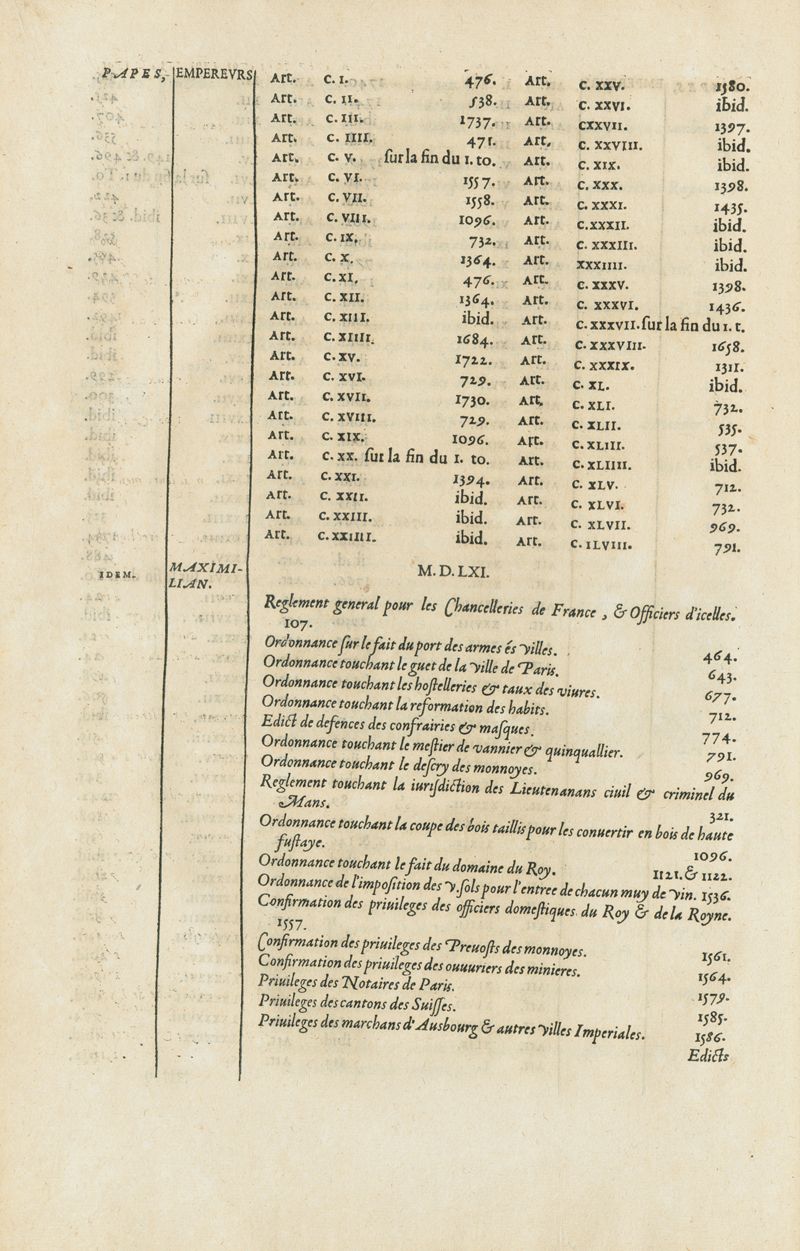 PAPES, EMPEREVRS
Art. C. I. 476. Art. C. XXV. 1580.
Art. C. II. 538. Art. C. XXVI. ibid.
Art. C. III. 1737. Art. CXXVII. 1397.
Art. C. IIII. 471. Art. C. XXVIII. ibid.
Art. C. V. ſur la fin du 1. to. Art. C. XIX. ibid.
Art. C. VI. 1557. Art. C. XXX. 1398.
Art. C. VII. 1558. Art. C. XXXI. 1435.
Art. C. VIII. 1096. Art. C. XXXII. ibid.
Art. C. IX. 732. Art. C. XXXIII. ibid.
Art. C. X. 1364. Art. XXXIIII. ibid.
Art. C. XI. 476. Art. C. XXXV. 1398.
Art. C. XII. 1364. Art. C. XXXVI. 1436.
Art. C. XIII. ibid. Art. C. XXXVII. ſur la fin du 1. t.
Art. C. XIIII. 1684. Art. C. XXXVIII. 1658.
Art. C. XV. 1722. Art. C. XXXIX. 1311.
Art. C. XVI. 729. Art. C. XL. ibid.
Art. C. XVII. 1730. Art. C. XLI. 732.
Art. C. XVIII. 729. Art. C. XLII. 535.
Art. C. XIX. 1096. Art. C. XLIII. 537.
Art. C. XX. ſur la fin du 1. to. Art. C. XLIIII. ibid.
Art. C. XXI. 1394. Art. C. XLV. 712.
Art. C. XXII. ibid. Art. C. XLVI. 732.
Art. C. XXIII. ibid. Art. C. XLVII. 969.
Art. C. XXIIII. ibid. Art. C. ILVIII. 791.
IDEM. MAXIMI-
LIAN.
M. D. LXI.
Reglement general pour les Chancelleries de France, & Officiers d'icelles.
107.
Ordonnance ſur le fait du port des armes és villes. 464.
Ordonnance touchant le guet de la ville de Paris. 643.
Ordonnance touchant les hoſtelleries & taux des viures. 677.
Ordonnance touchant la reformation des habits. 712.
Edict de defences des confrairies & maſques. 774.
Ordonnance touchant le meſtier de vannier & quinquallier. 791.
Ordonnance touchant le deſcry des monnoyes. 969.
Reglement touchant la iuriſdiction des Lieutenanans ciuil & criminel du
Mans. 321.
Ordonnance touchant la coupe des bois taillis pour les conuertir en bois de haute
fuſtaye. 1096.
Ordonnance touchant le fait du domaine du Roy. 1121. & 1122.
Ordonnance de l'impoſition des v. ſols pour l'entree de chacun muy de vin. 1536.
Confirmation des priuileges des officiers domeſtiques du Roy & de la Royne.
1557.
Confirmation des priuileges des Preuoſts des monnoyes. 1561.
Confirmation des priuileges des ouuuriers des minieres. 1564.
Priuileges des Notaires de Paris. 1579.
Priuileges des cantons des Suiſſes. 1585.
Priuileges des marchans d'Ausbourg & autres villes Imperiales. 1586.
Edicts